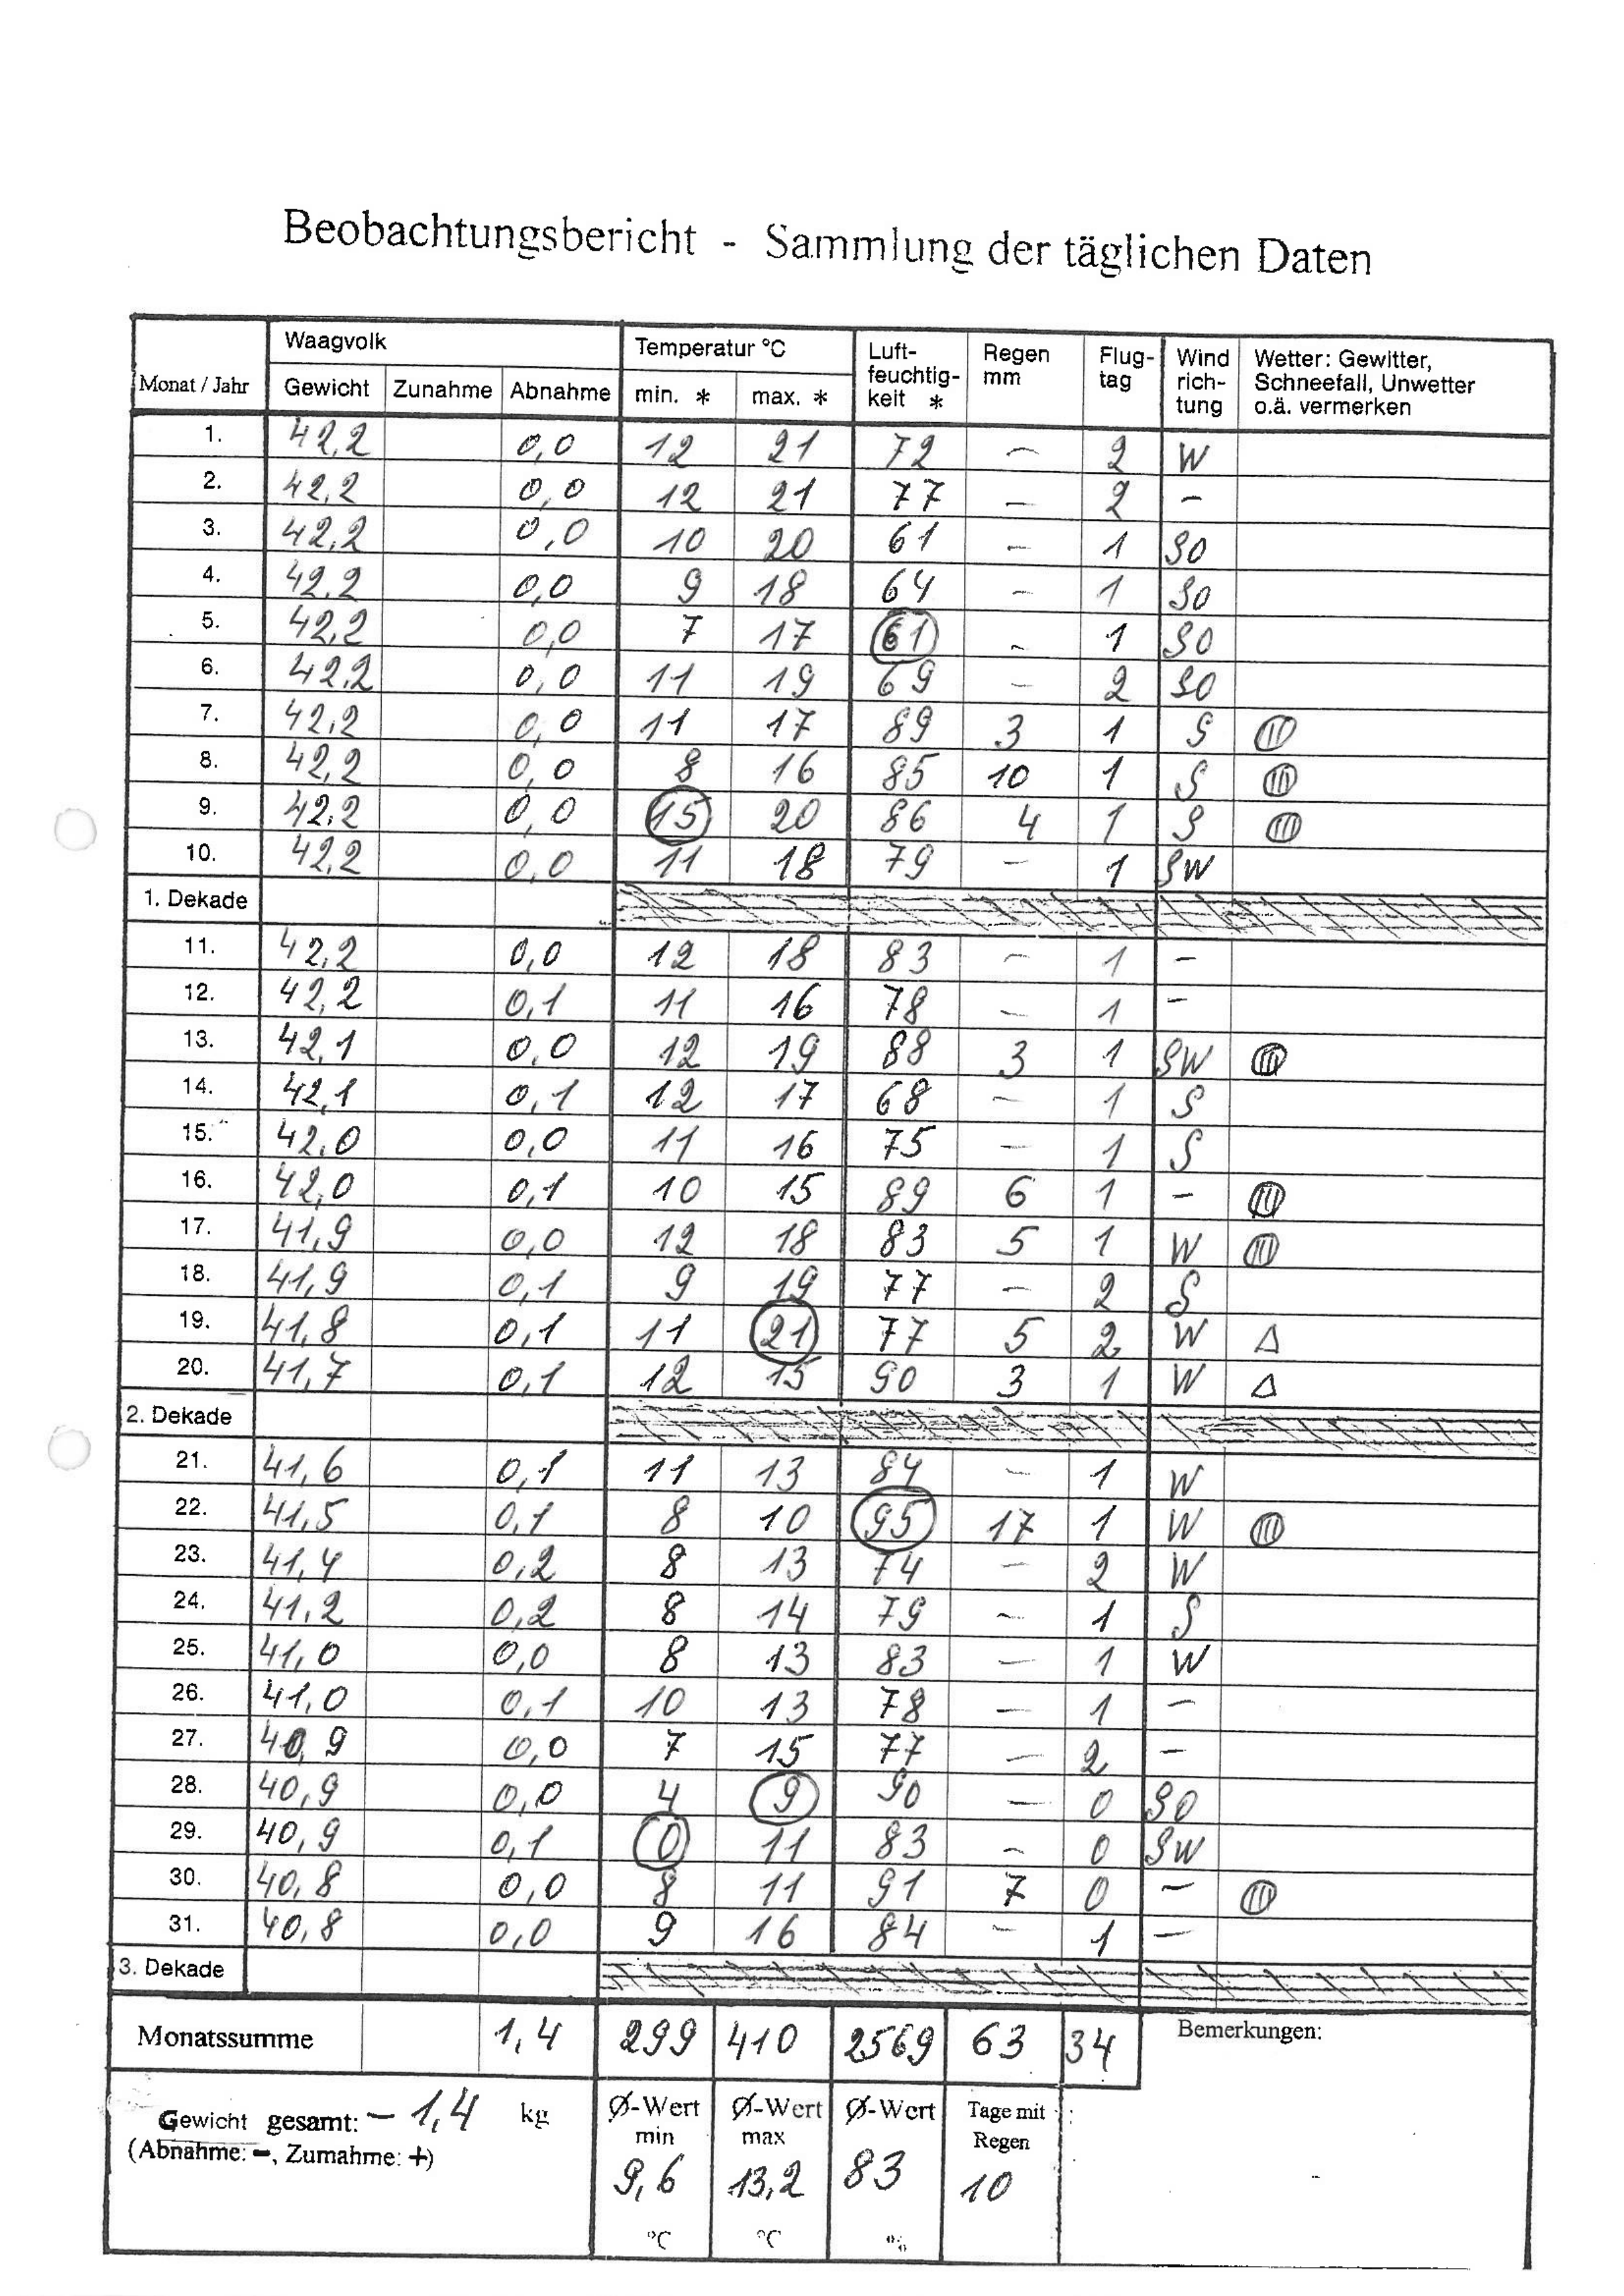 Beobachtungsbericht - Sammlung der täglichen Daten
Monat / Jahr Waagvolk Temperatur °C Luft-feuchtig-keit * Regen mm Flug-tag Wind rich-tung Wetter: Gewitter, Schneefall, Unwetter o.ä. vermerken
Gewicht Zunahme Abnahme min. * max. *
1. 42,2 0,0 12 21 72 – 2 W
2. 42,2 0,0 12 21 77 – 2 –
3. 42,2 0,0 10 20 61 – 1 SO
4. 42,2 0,0 9 18 64 – 1 SO
5. 42,2 0,0 7 17 61 – 1 SO
6. 42,2 0,0 11 19 69 – 2 SO
7. 42,2 0,0 11 17 89 3 1 S
8. 42,2 0,0 8 16 85 10 1 S
9. 42,2 0,0 15 20 86 4 1 S
10. 42,2 0,0 11 18 79 – 1 SW
1. Dekade
11. 42,2 0,0 12 18 83 – 1 –
12. 42,2 0,1 11 16 78 – 1 –
13. 42,1 0,0 12 19 88 3 1 SW
14. 42,1 0,1 12 17 68 – 1 S
15. 42,0 0,0 11 16 75 – 1 S
16. 42,0 0,1 10 15 89 6 1 –
17. 41,9 0,0 12 18 83 5 1 W
18. 41,9 0,1 9 19 77 – 2 S
19. 41,8 0,1 11 21 77 5 2 W Δ
20. 41,7 0,1 12 15 90 3 1 W Δ
2. Dekade
21. 41,6 0,1 11 13 84 – 1 W
22. 41,5 0,1 8 10 95 17 1 W
23. 41,4 0,2 8 13 74 – 2 W
24. 41,2 0,2 8 14 79 – 1 S
25. 41,0 0,0 8 13 83 – 1 W
26. 41,0 0,1 10 13 78 – 1 –
27. 40,9 0,0 7 15 77 – 2 –
28. 40,9 0,0 4 9 90 – 0 SO
29. 40,9 0,1 0 11 83 – 0 SW
30. 40,8 0,0 8 11 91 7 0 –
31. 40,8 0,0 9 16 84 – 1 –
3. Dekade
Monatssumme 1,4 299 410 2569 63 34 Bemerkungen:
Gewicht gesamt: – 1,4 kg Ø-Wert min Ø-Wert max Ø-Wert Tage mit Regen
(Abnahme: –, Zumahme: +)
9,6 13,2 83 10
°C °C %